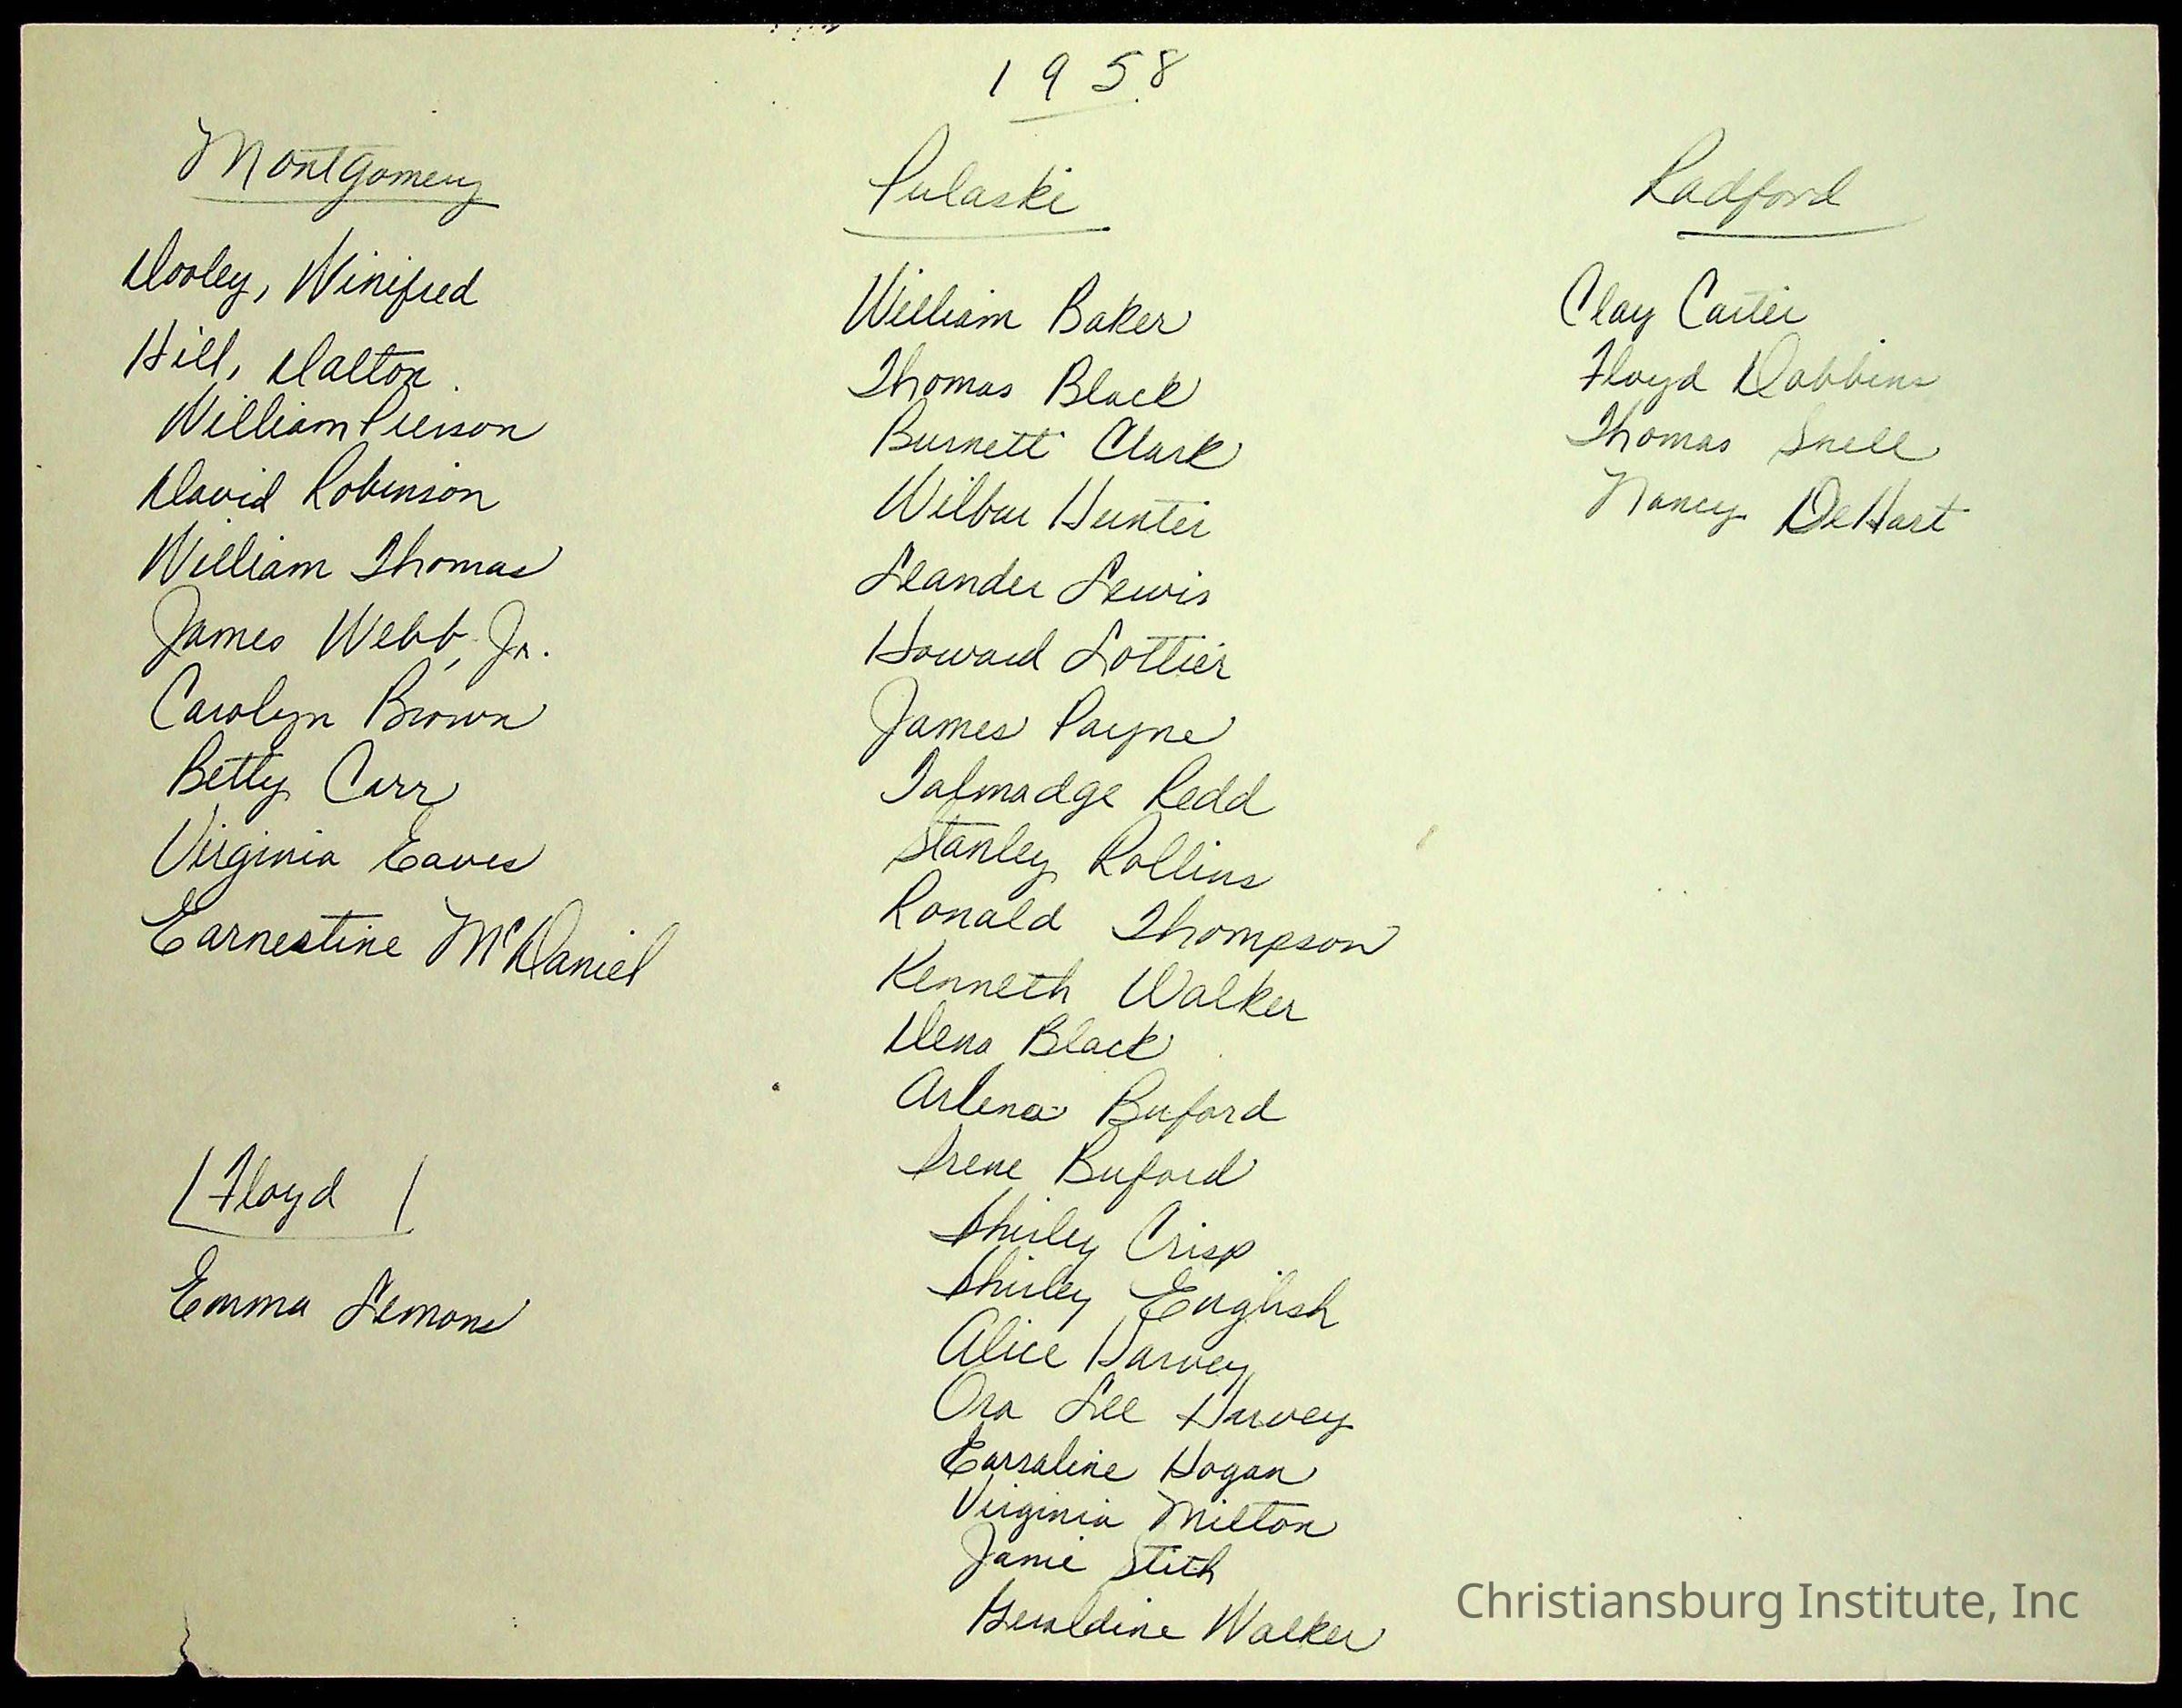 1958
Montgomery
Dooley, Winifred
Hill, Dalton.
William Pierson
David Robinson
William Thomas
James Webb, Jr.
Carolyn Brown
Betty Carr
Virginia Eaves
Earnestine McDaniel
Floyd
Emma Lemons
Pulaski
William Baker
Thomas Black
Burnett Clark
Wilbur Hunter
Leander Lewis
Howard Lottier
James Payne
Talmadge Redd
Stanley Rollins
Ronald Thompson
Kenneth Walker
Dena Black
Arlena Buford
Irene Buford
Shirley Crisp
Shirley English
Alice Harvey
Ora Lee Harvey
Earsaline Hogan
Virginia Milton
Janie Stith
Geraldine Walker
Radford
Clay Carter
Floyd Dobbins
Thomas Snell
Nancy DeHart
Christiansburg Institute, Inc